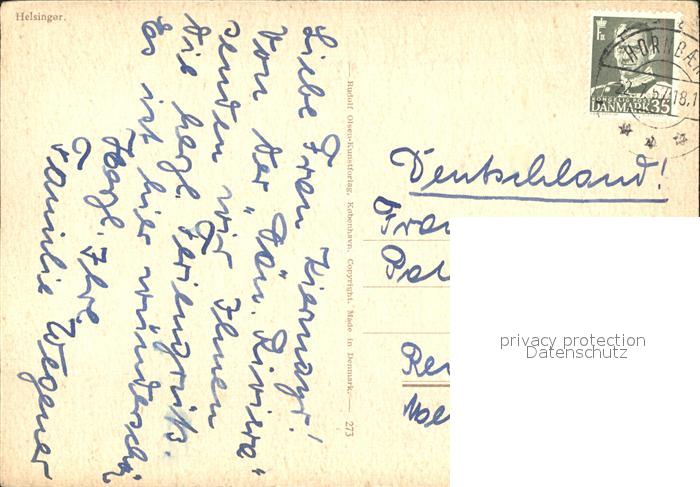 Helsingør.
Liebe Frau Kiermayr!
Von der "Dän. Riviera"
senden wir Ihnen
die herzl. Feriengrüße.
Es ist hier wunderschön
Herzl. Ihre
Familie Wegener
Rudolf Olsen-Kunstforlag, København. Copyright. Made in Denmark. — 273
HORNBÆK
22 57.18.1
DANMARK 35
Deutschland!
privacy protection
Datenschutz